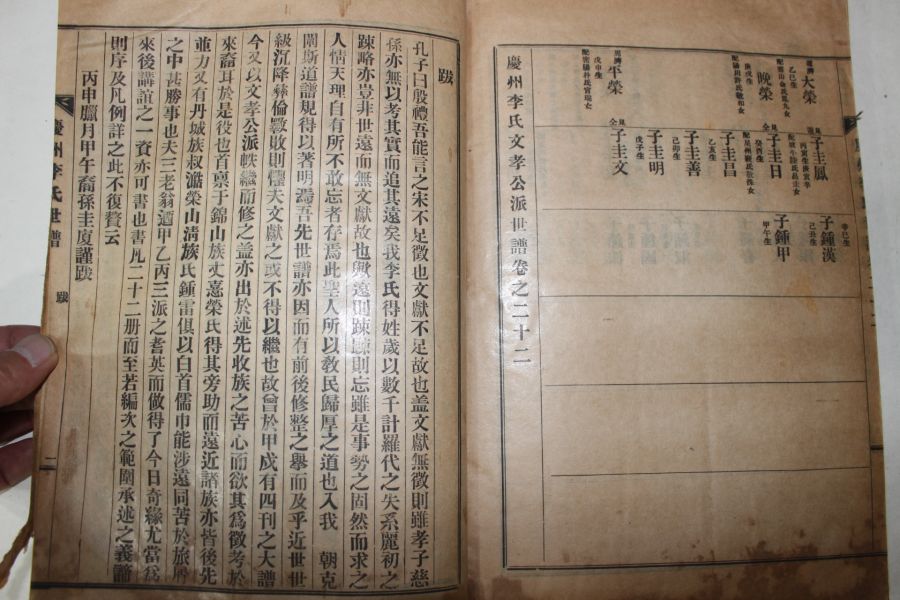 辛巳生
子鍾漢
己丑生
見系
子圭鳳
丙寅生
大榮
乙巳生
子鍾甲
甲午生
子圭日
癸酉生
晩榮
庚戌生
子圭昌
乙亥生
子圭善
己卯生
子圭明
戊子生
子圭文
平榮
戊申生
慶州李氏文孝公派世譜卷之二十二
跋
孔子曰殷禮吾能言之宋不足徵也文獻不足故也盖文獻無徵則雖孝子慈
孫亦無以考其實而追其遠矣我李氏得姓歲以數千計羅代之失系麗初之
踈略亦豈非世遠而無文獻故也歟遠則踈踈則忘雖是事勢之固然而求之
人情天理自有所不敢忘者存焉此聖人所以敎民歸厚之道也入我 朝克
闡斯道譜規得以著明焉吾先世譜亦因而有前後修整之擧而及乎近世世
級沉降彛倫斁敗則懼夫文獻之或不得以繼也故曾於甲戌有四刊之大譜
今又以文孝公派帙繼而修之盖亦出於述先收族之苦心而欲其爲徵考於
來裔耳於是役也首禀于錦山族丈憙榮氏得其旁助而遠近諸族亦皆後先
並力又有丹城族叔澔榮山淸族氏鍾雷俱以白首儒巾能涉遠同苦於旅
之中甚勝事也夫三老翁遒甲乙丙三派之耆英而做得了今日奇緣尤當爲
來後講誼之一資亦可書也書凡二十二册而至若編次之範圍承述之義諦
則序及凡例詳之此不復贅云
丙申臘月甲午裔孫圭廈謹跋
慶州李氏世譜
跋
二